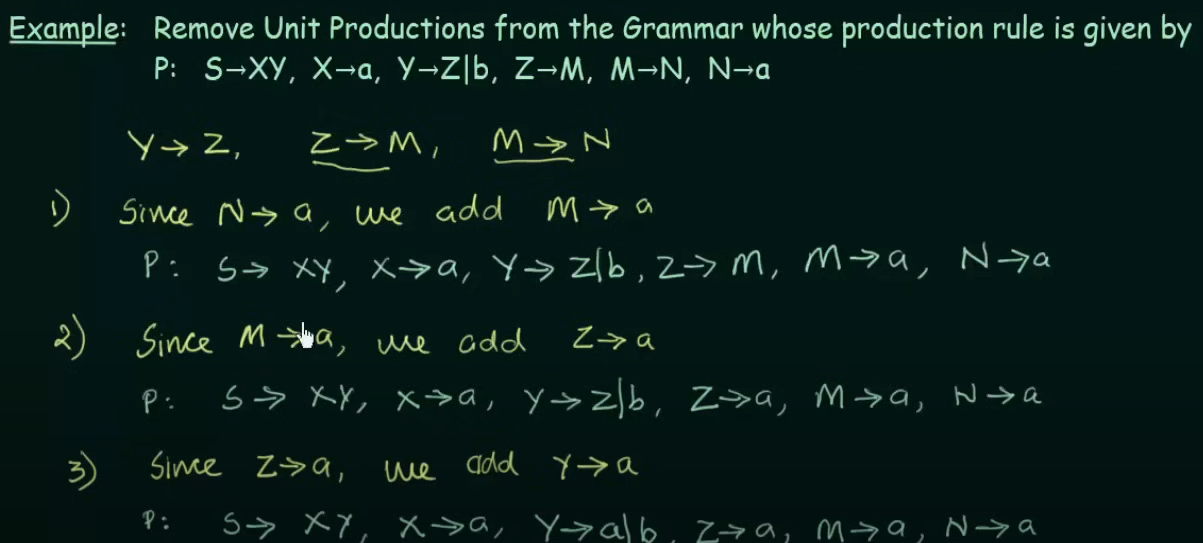 Example: Remove Unit Productions from the Grammar whose production rule is given by
P: S→XY, X→a, Y→Z|b, Z→M, M→N, N→a
Y→Z, Z→M, M→N
1) Since N→a, we add M→a
P: S→XY, X→a, Y→Z|b, Z→M, M→a, N→a
2) Since M→a, we add Z→a
P: S→XY, X→a, Y→Z|b, Z→a, M→a, N→a
3) Since Z→a, we add Y→a
P: S→XY, X→a, Y→a|b, Z→a, M→a, N→a